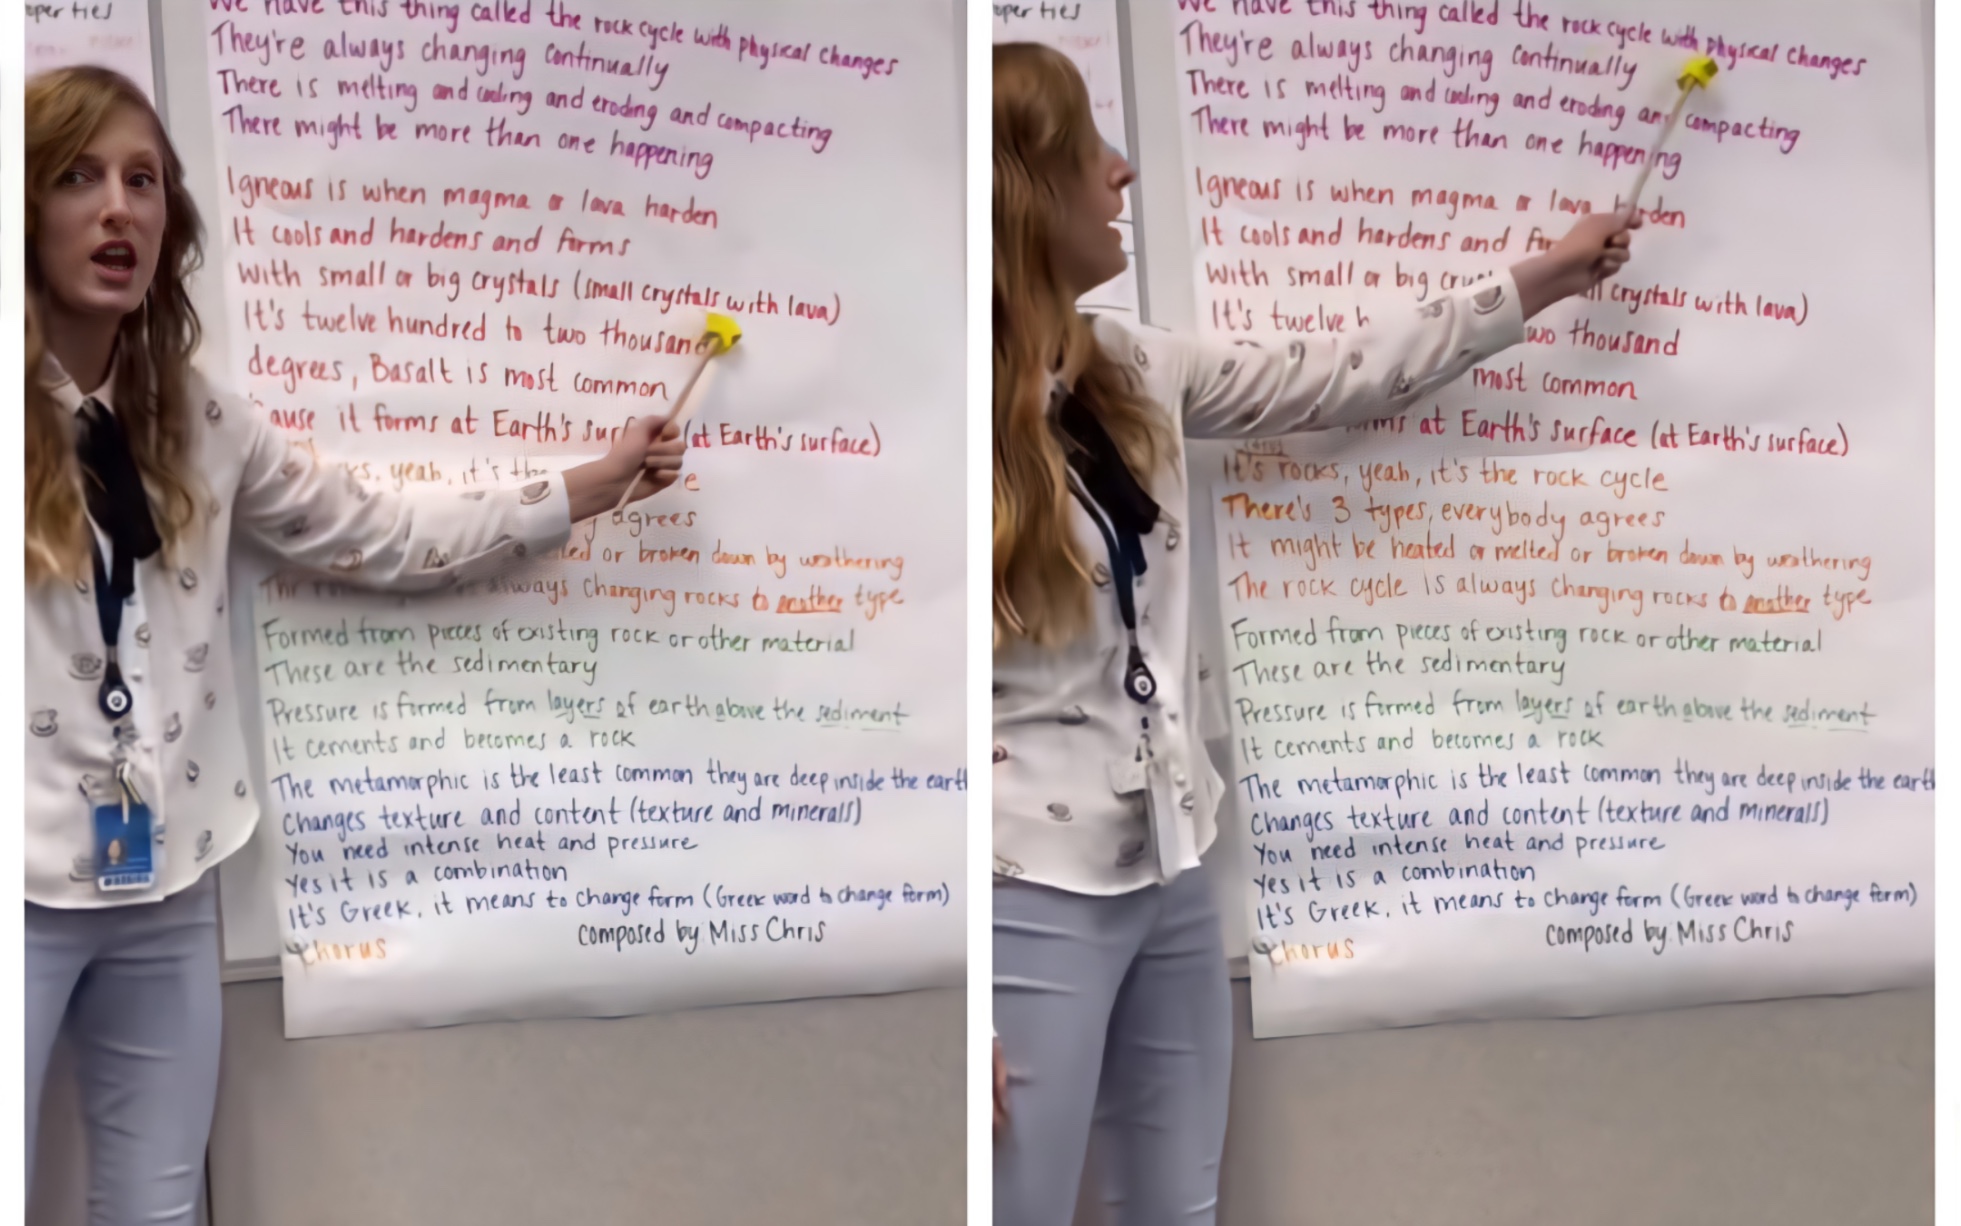 oper ties
We have this thing called the rock cycle with physical changes
They're always changing continually
There is melting and cooling and eroding and compacting
There might be more than one happening
Igneous is when magma or lava harden
It cools and hardens and forms
with small or big crystals (small crystals with lava)
It's twelve hundred to two thousand
degrees, Basalt is most common
'cause it forms at Earth's surf (at Earth's surface)
ks, yeah, it's the e
y agrees
ted or broken down by weathering
The always changing rocks to another type
Formed from pieces of existing rock or other material
These are the sedimentary
Pressure is formed from layers of earth above the sediment
It cements and becomes a rock
The metamorphic is the least common they are deep inside the earth
Changes texture and content (texture and minerals)
You need intense heat and pressure
Yes it is a combination
It's Greek, it means to change form (Greek word to change form)
Chorus
composed by Miss Chris
oper ties
We have this thing called the rock cycle with physical changes
They're always changing continually
There is melting and cooling and eroding and compacting
There might be more than one happening
Igneous is when magma or lava harden
It cools and hardens and for
with small or big crys ll crystals with lava)
It's twelve h two thousand
most common
forms at Earth's surface (at Earth's surface)
It's rocks, yeah, it's the rock cycle
There's 3 types, everybody agrees
It might be heated or melted or broken down by weathering
The rock cycle is always changing rocks to another type
Formed from pieces of existing rock or other material
These are the sedimentary
Pressure is formed from layers of earth above the sediment
It cements and becomes a rock
The metamorphic is the least common they are deep inside the earth
Changes texture and content (texture and minerals)
You need intense heat and pressure
Yes it is a combination
It's Greek, it means to change form (Greek word to change form)
Chorus
composed by Miss Chris